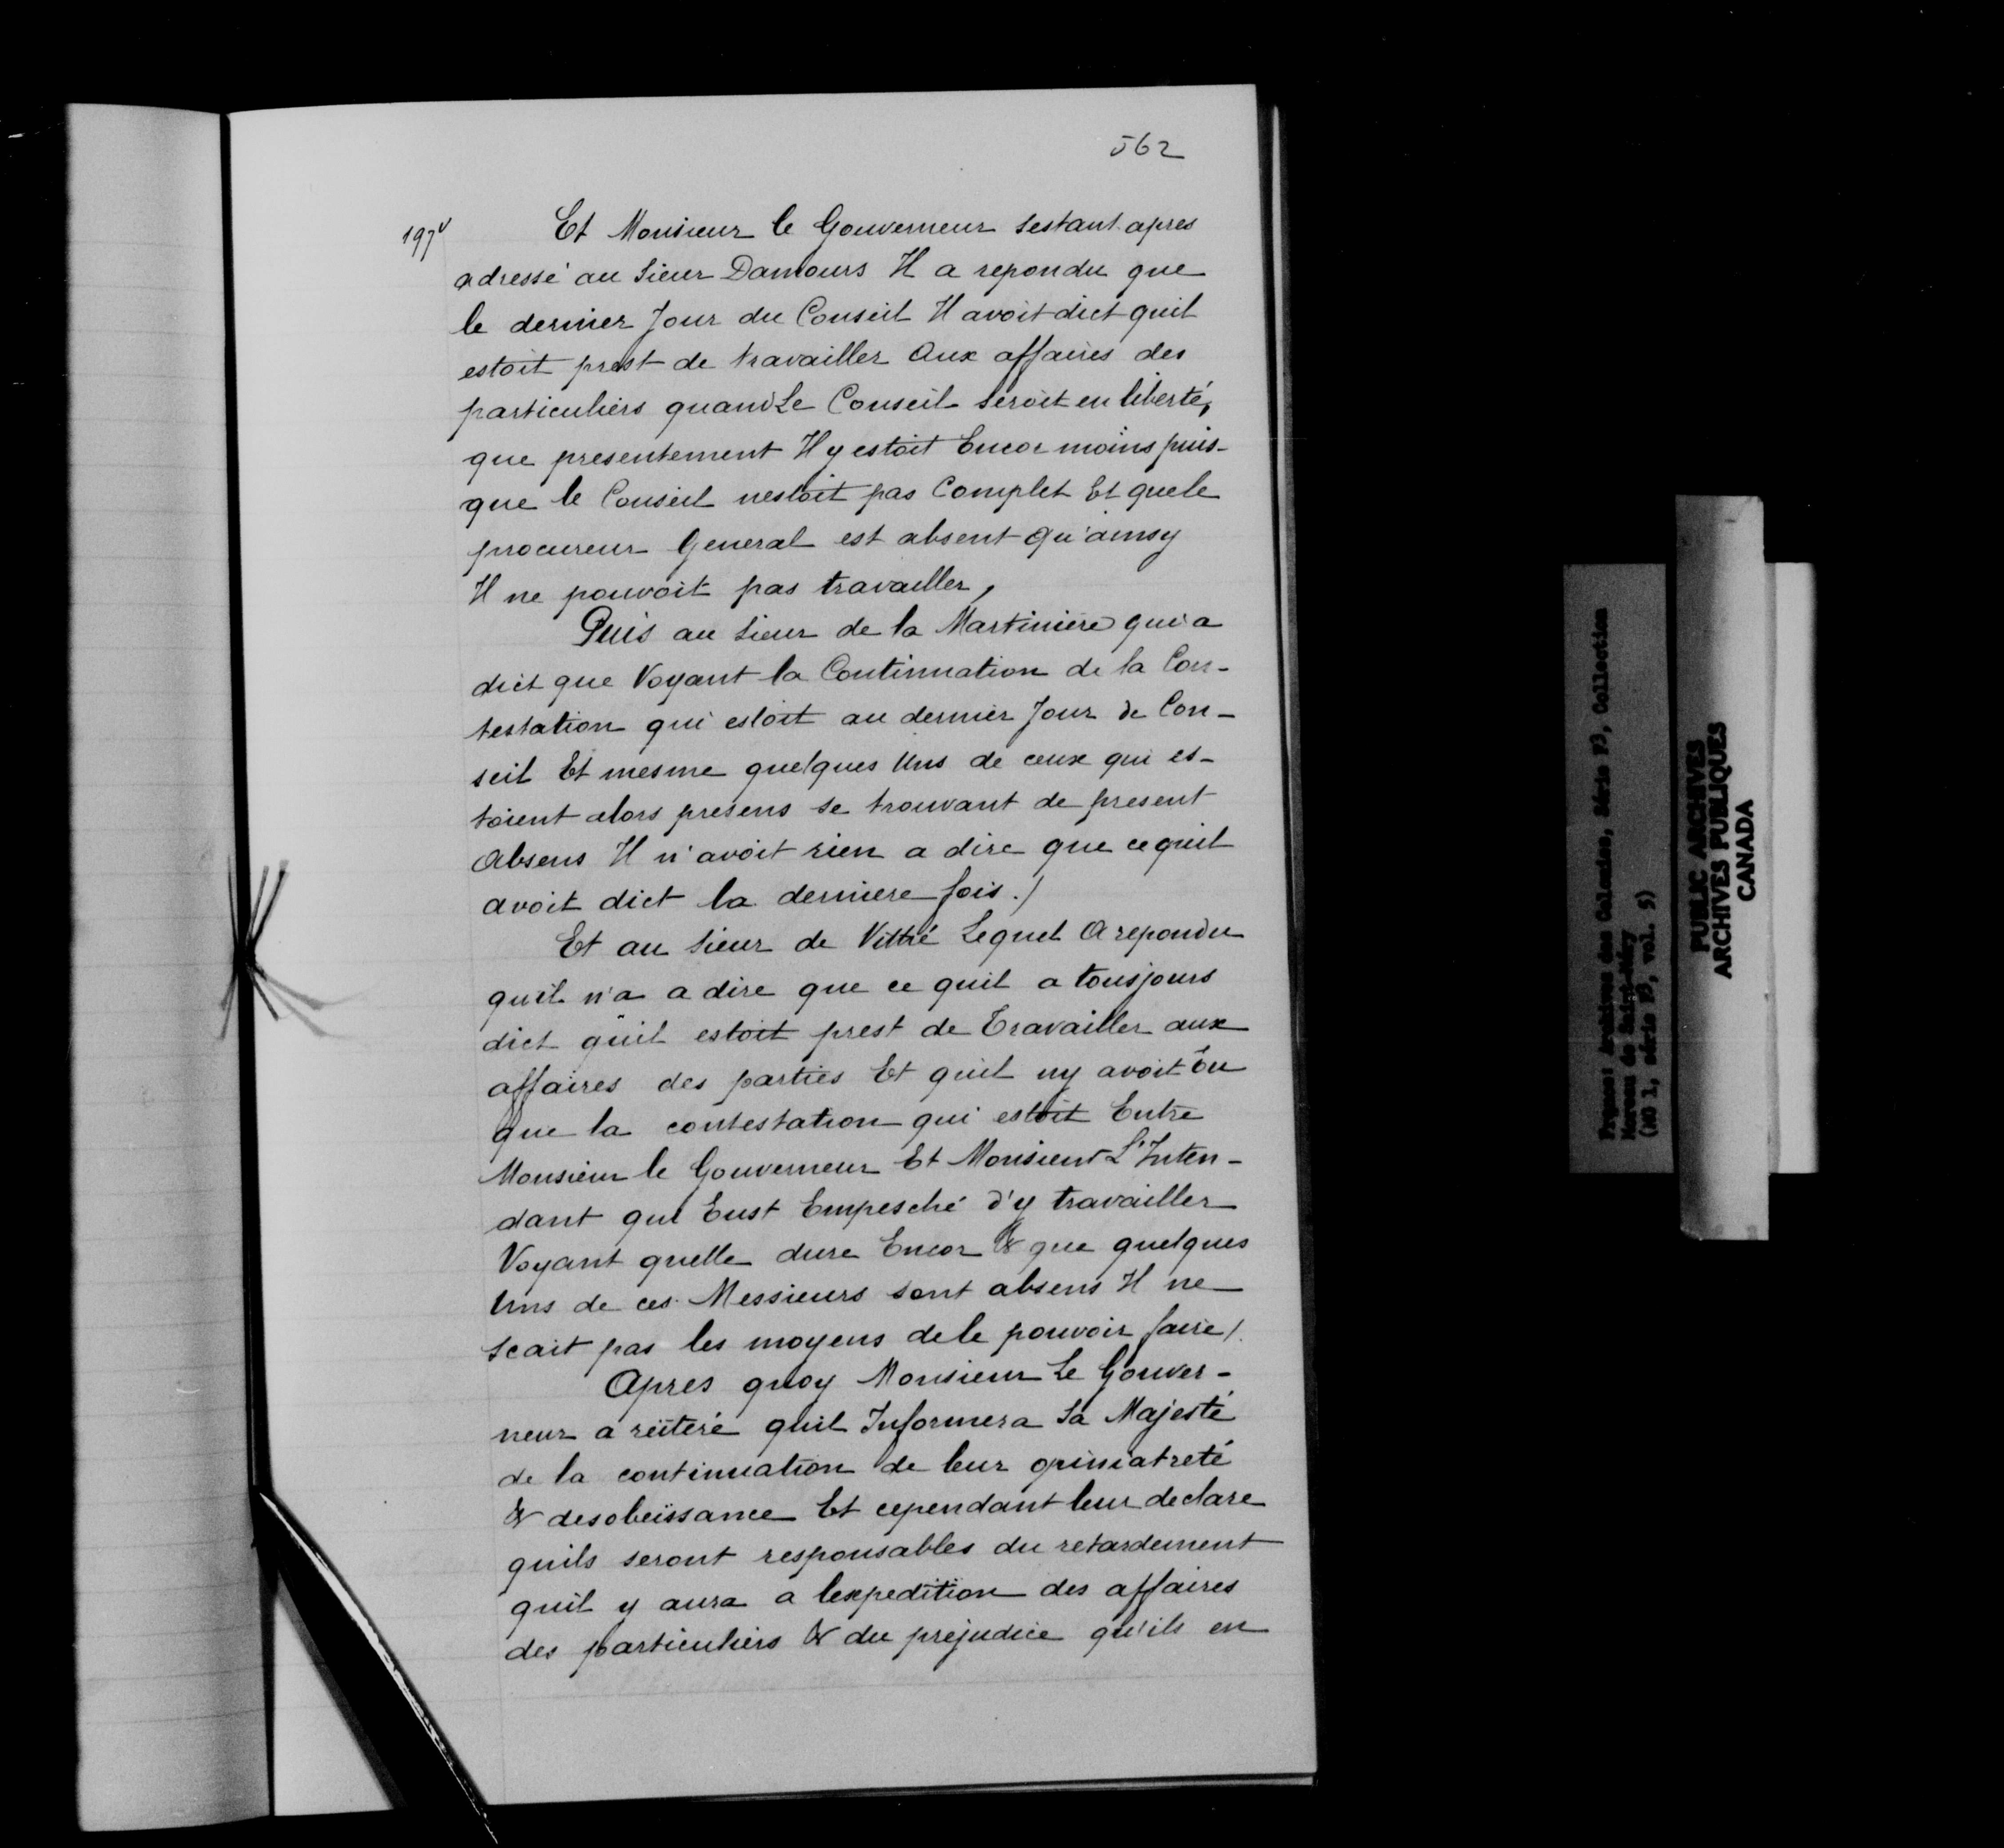 562
197v
Et Monsieur le Gouverneur sestant apres
adressé au Sieur Damours Il a repondu que
le dernier Jour du Conseil Il avoit dict quil
estoit prest de travailler Aux affaires des
particuliers quand Le Conseil seroit en liberté,
que presentement Il y estoit Encor moins puis-
que le Conseil nestoit pas Complet Et que le
procureur General est absent qu'ainsy
Il ne pouvoit pas travailler,
Puis au Sieur de la Martiniere qui a
dict que Voyant la Continuation de la Con-
testation qui estoit au dernier Jour de Con-
seil Et mesme quelques Uns de ceux qui es-
toient alors presens se trouvant de present
Absens Il n'avoit rien a dire que ce quil
avoit dict la derniere fois./
Et au Sieur de Vittré Lequel A repondu
quil n'a a dire que ce quil a tousjours
dict quil estoit prest de Travailler aux
affaires des parties Et quil ny avoit Eu
que la contestation qui estoit Entre
Monsieur le Gouverneur Et Monsieur L'Inten-
dant qui Eust Empesché d'y travailler
Voyant quelle dure Encor & que quelques
Uns de ces Messieurs sont absens Il ne
scait pas les moyens de le pouvoir faire/.
Apres quoy Monsieur Le Gouver-
neur a reïteré quil Informera Sa Majesté
de la continuation de leur opiniatreté
& desobeïssance Et cependant leur declare
quils seront responsables du retardement
quil y aura a lexpedition des affaires
des particuliers & du prejudice qu'ils en
France: Archives des Colonies, Série F3, Collection
Moreau de Saint-Méry
(MG 1, série F3, vol. 5)
PUBLIC ARCHIVES
ARCHIVES PUBLIQUES
CANADA